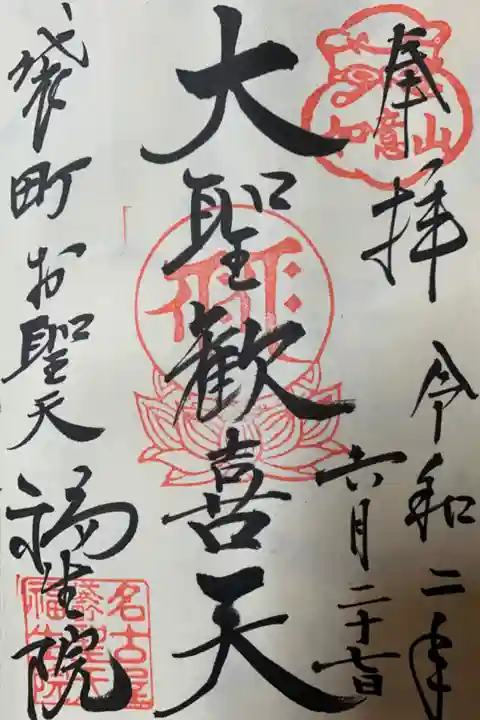 奉拝
如意山
令和二年
六月二十七日
大聖歓喜天
袋町お聖天
福生院
名古屋
福生院